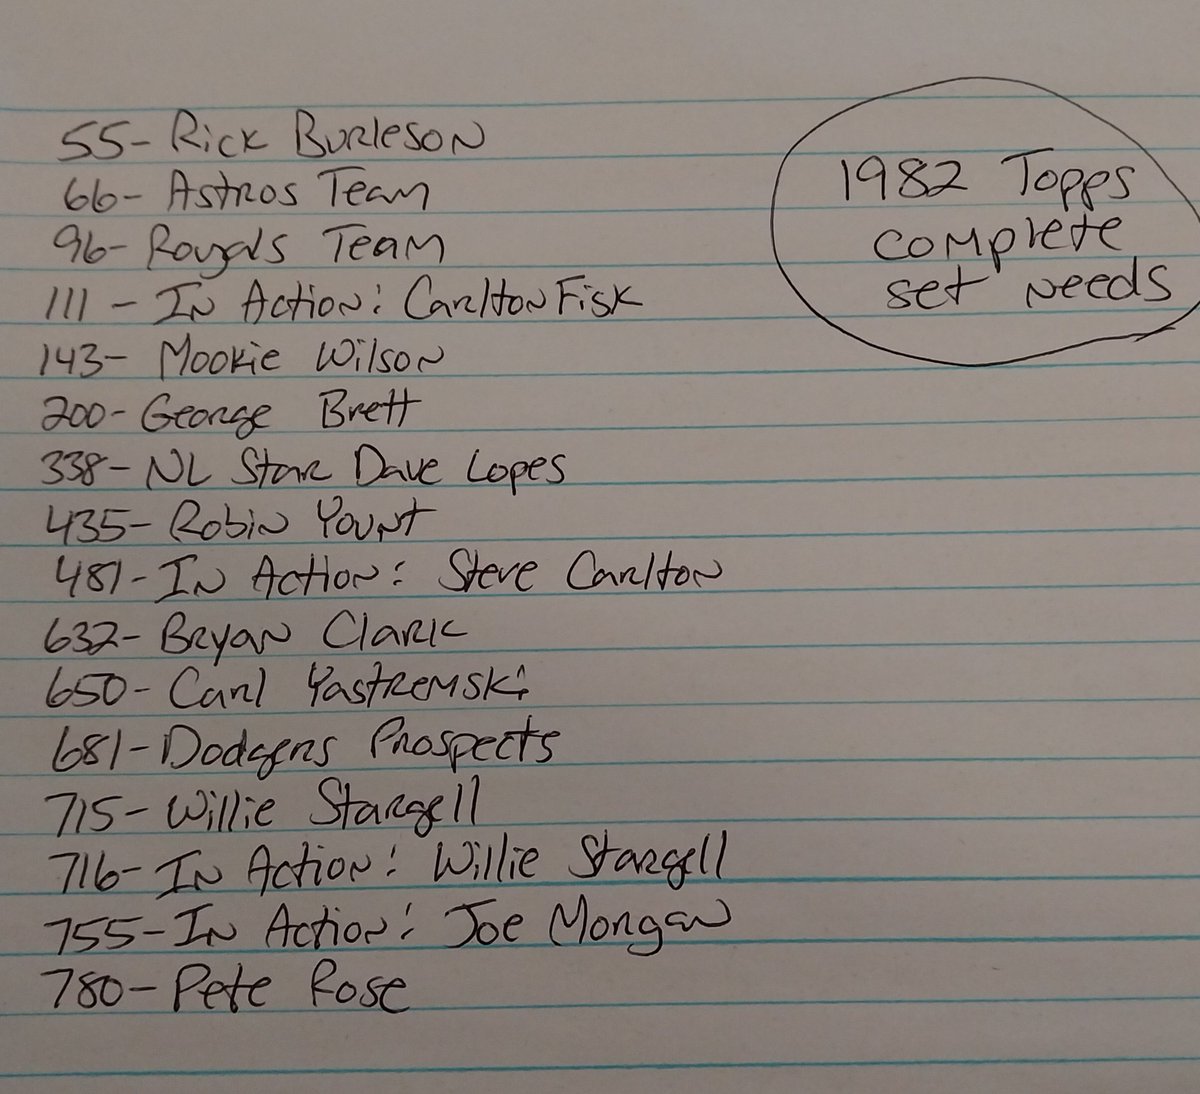 55- Rick Burleson
66- Astros Team
96- Royals Team
111 - In Action: Carlton Fisk
143- Mookie Wilson
200- George Brett
338- NL Star Dave Lopes
435- Robin Yount
481- In Action: Steve Carlton
632- Bryan Clark
650- Carl Yastremski
681- Dodgers Prospects
715- Willie Stargell
716- In Action: Willie Stargell
755- In Action: Joe Morgan
780- Pete Rose
1982 Topps
complete
set needs